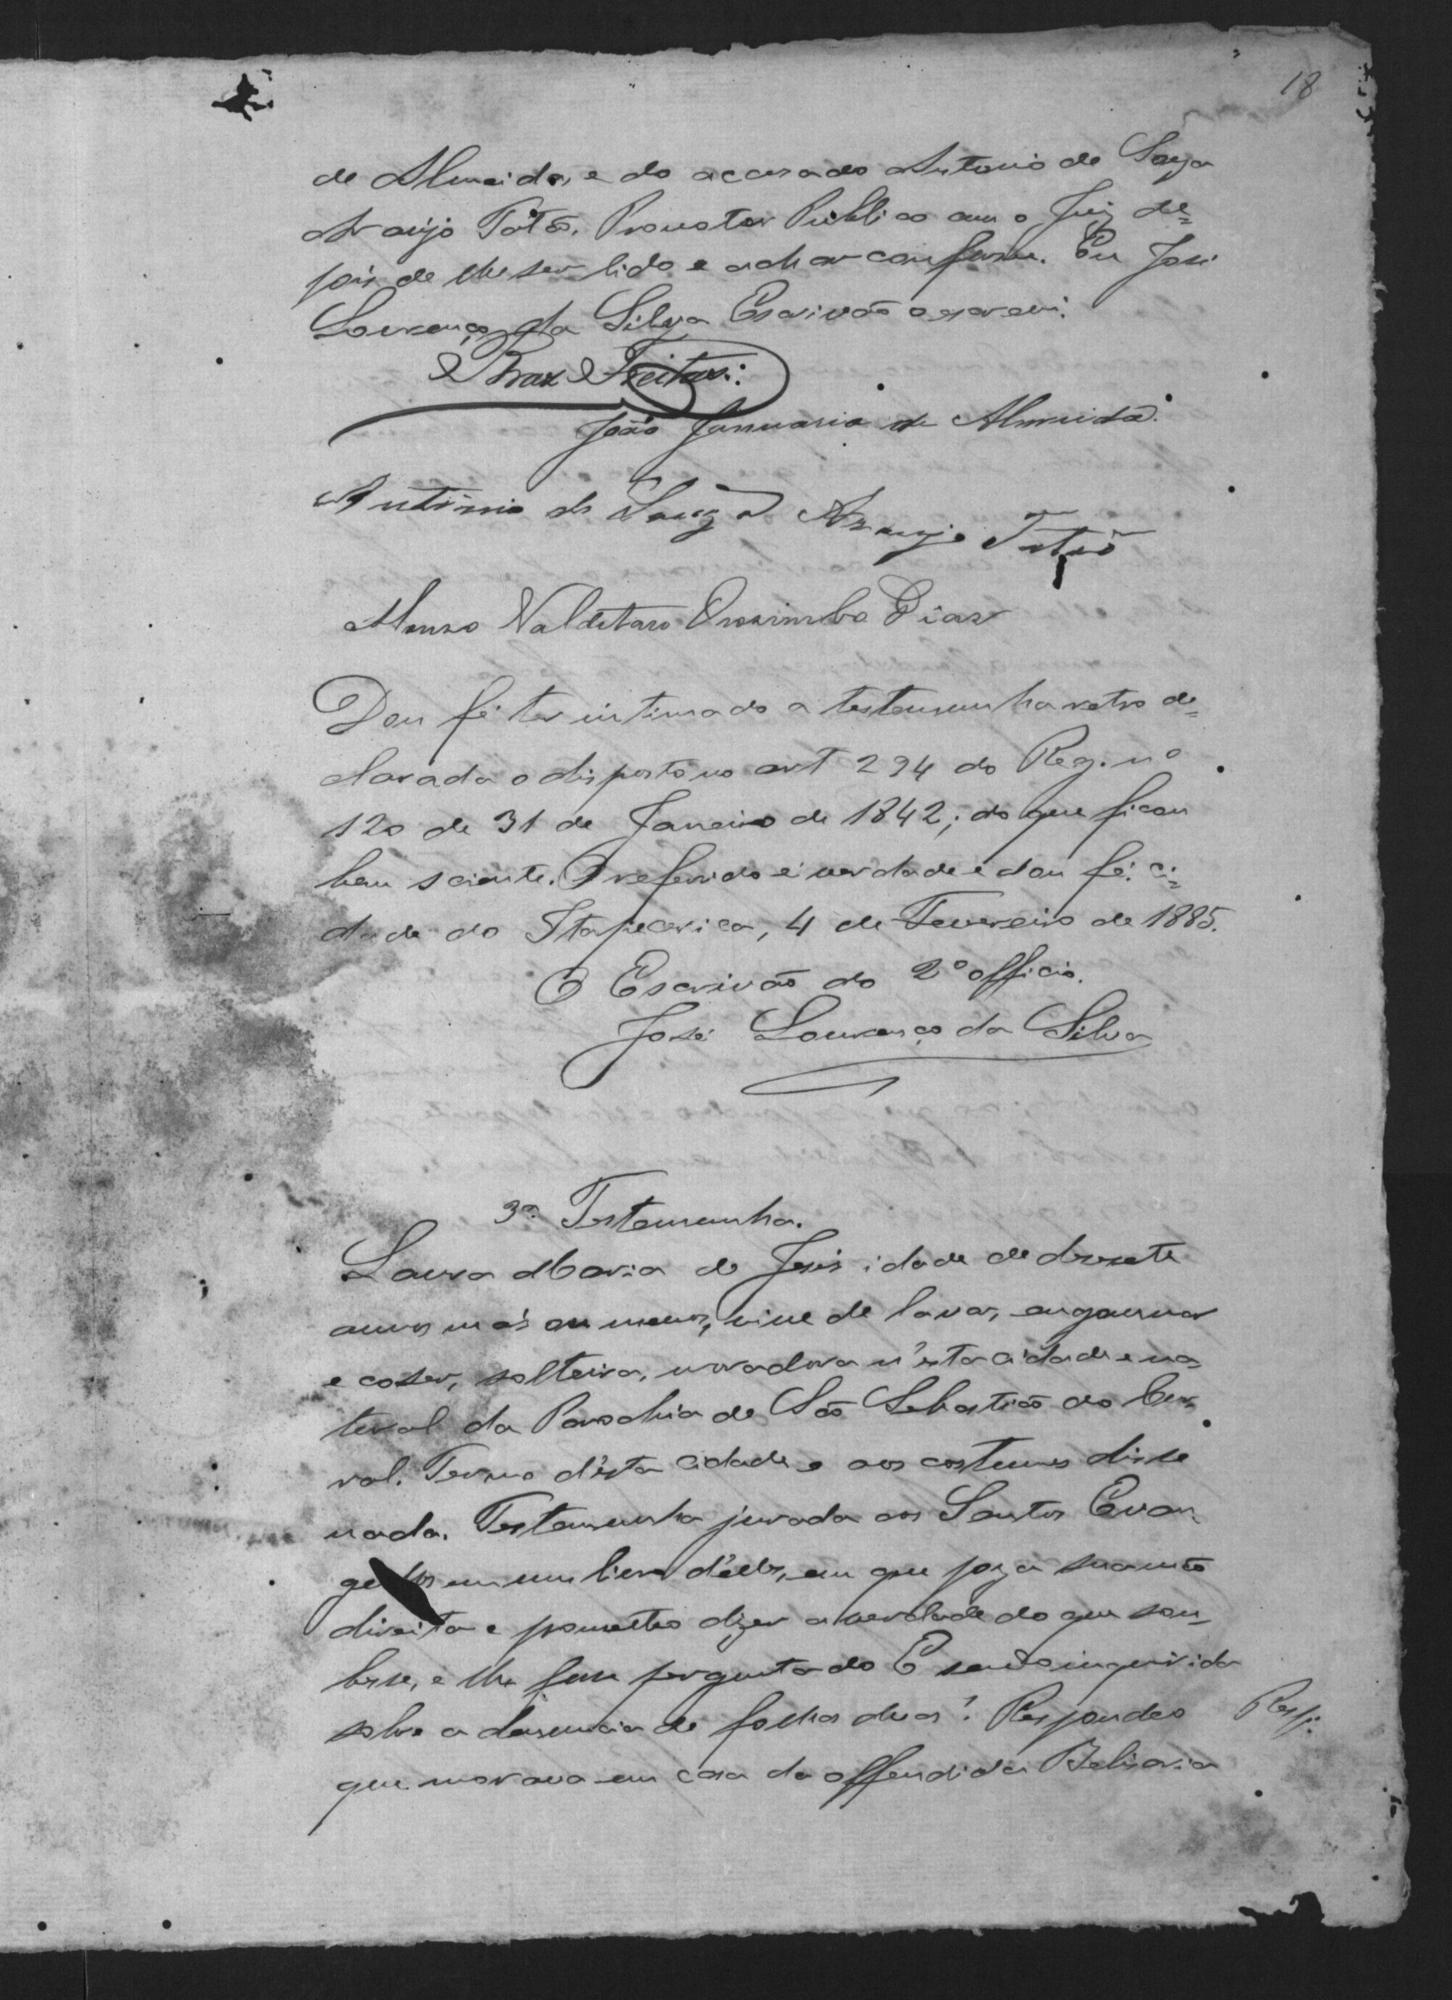 18
de Almeida, e do accusado Antonio de Souza
Araujo Totó, Promotor Publico com o Juiz de=
pois de lhe ser lido e achar conforme. Eu José
Lourenço da Silva Escrivão o escrevi.
Braz Freitas.
João Januario de Almeida.
Antonio de Souza Araujo Totó
Dias
Dou fé ter intimado a testemunha retro de=
clarada o disposto no art 294 do Reg. nº
120 de 31 de Janeiro de 1842; do que ficou
bem sciente. O referido é verdade e dou fé. Ci=
dade do Itapecerica, 4 de Fevereiro de 1885.
O Escrivão do 2º officio.
José Lourenço da Silva
3ª Testemunha.
Laura Maria de Jesus idade de desesete
annos mais ou menos, vive de lavar, engommar
e coser, solteira, moradora n'esta cidade e na=
tural da Parochia de São Sebastião do Cur=
ral. Termo d'esta cidade e aos costumes disse
nada. Testemunha jurada aos Santos Evan=
gelhos em um livro d'elles, em que poz a sua mão
direita e prometteo dizer a verdade do que sou=
besse, e lhe fosse perguntado E sendo inquirida
sobre a denuncia de folhas duas? Respondeo
Resp:
que morava em casa da offendida Belisaria